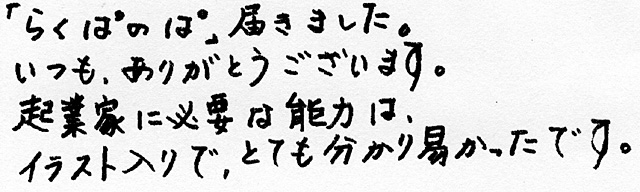 「らくぱのぱ」届きました。
いつも、ありがとうございます。
起業家に必要な能力は、
イラスト入りで、とても分かり易かったです。